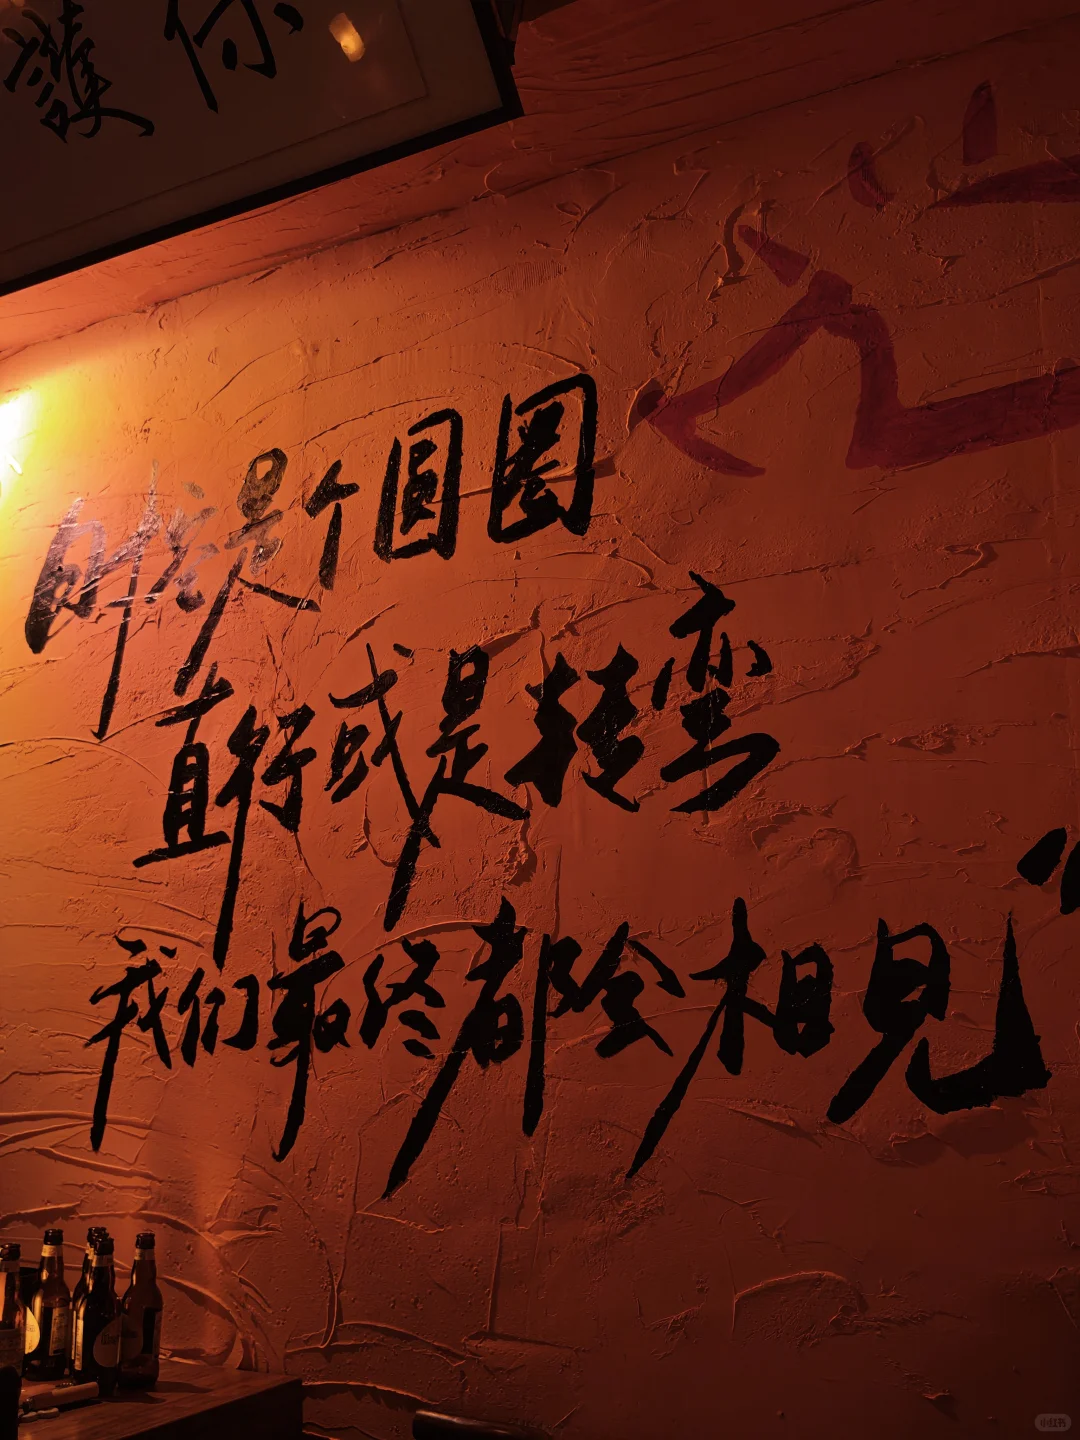 護 你
时空是个圆圈
直行或是转弯
我们最终都会相见
小红书